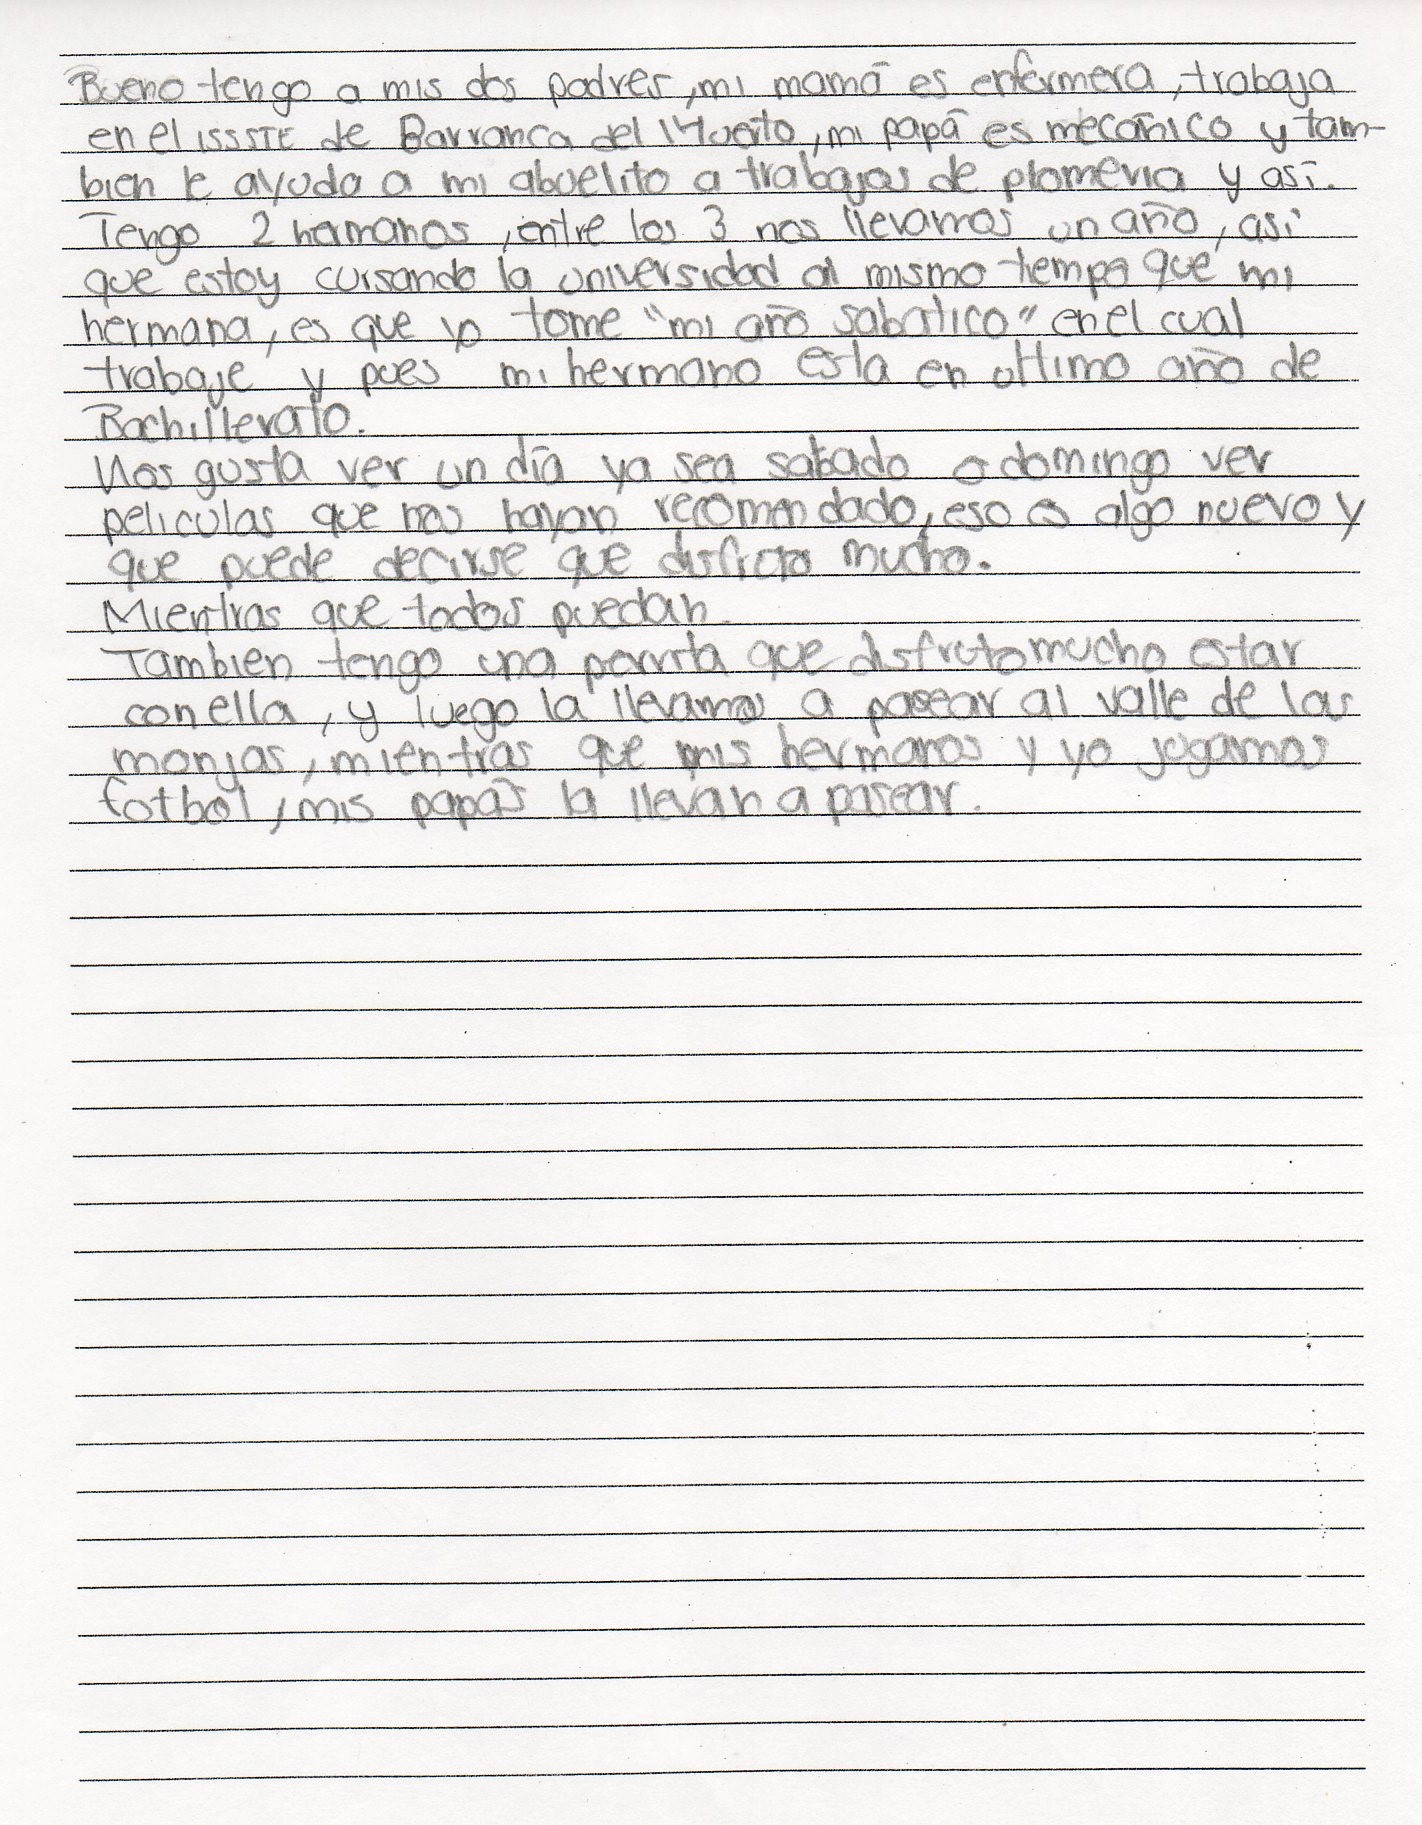 Bueno tengo a mis dos padres, mi mamá es enfermera, trabaja
en el ISSSTE de Barranca del Muerto, mi papá es mecánico y tam-
bien le ayuda a mi abuelito a trabajos de plomeria y así.
Tengo 2 hermanos, entre los 3 nos llevamos un año, así
que estoy cursando la universidad al mismo tiempo que mi
hermana, es que yo tome "mi año sabatico" en el cual
trabaje y pues mi hermano esta en ultimo año de
Bachillerato.
Nos gusta ver un día ya sea sabado o domingo ver
peliculas que nos hayan recomendado, eso es algo nuevo y
que puede decirse que disfruto mucho.
Mientras que todos puedan.
Tambien tengo una perrita que disfruto mucho estar
con ella, y luego la llevamos a pasear al valle de las
monjas, mientras que mis hermanos y yo jugamos
fotbol, mis papás la llevan a pasear.